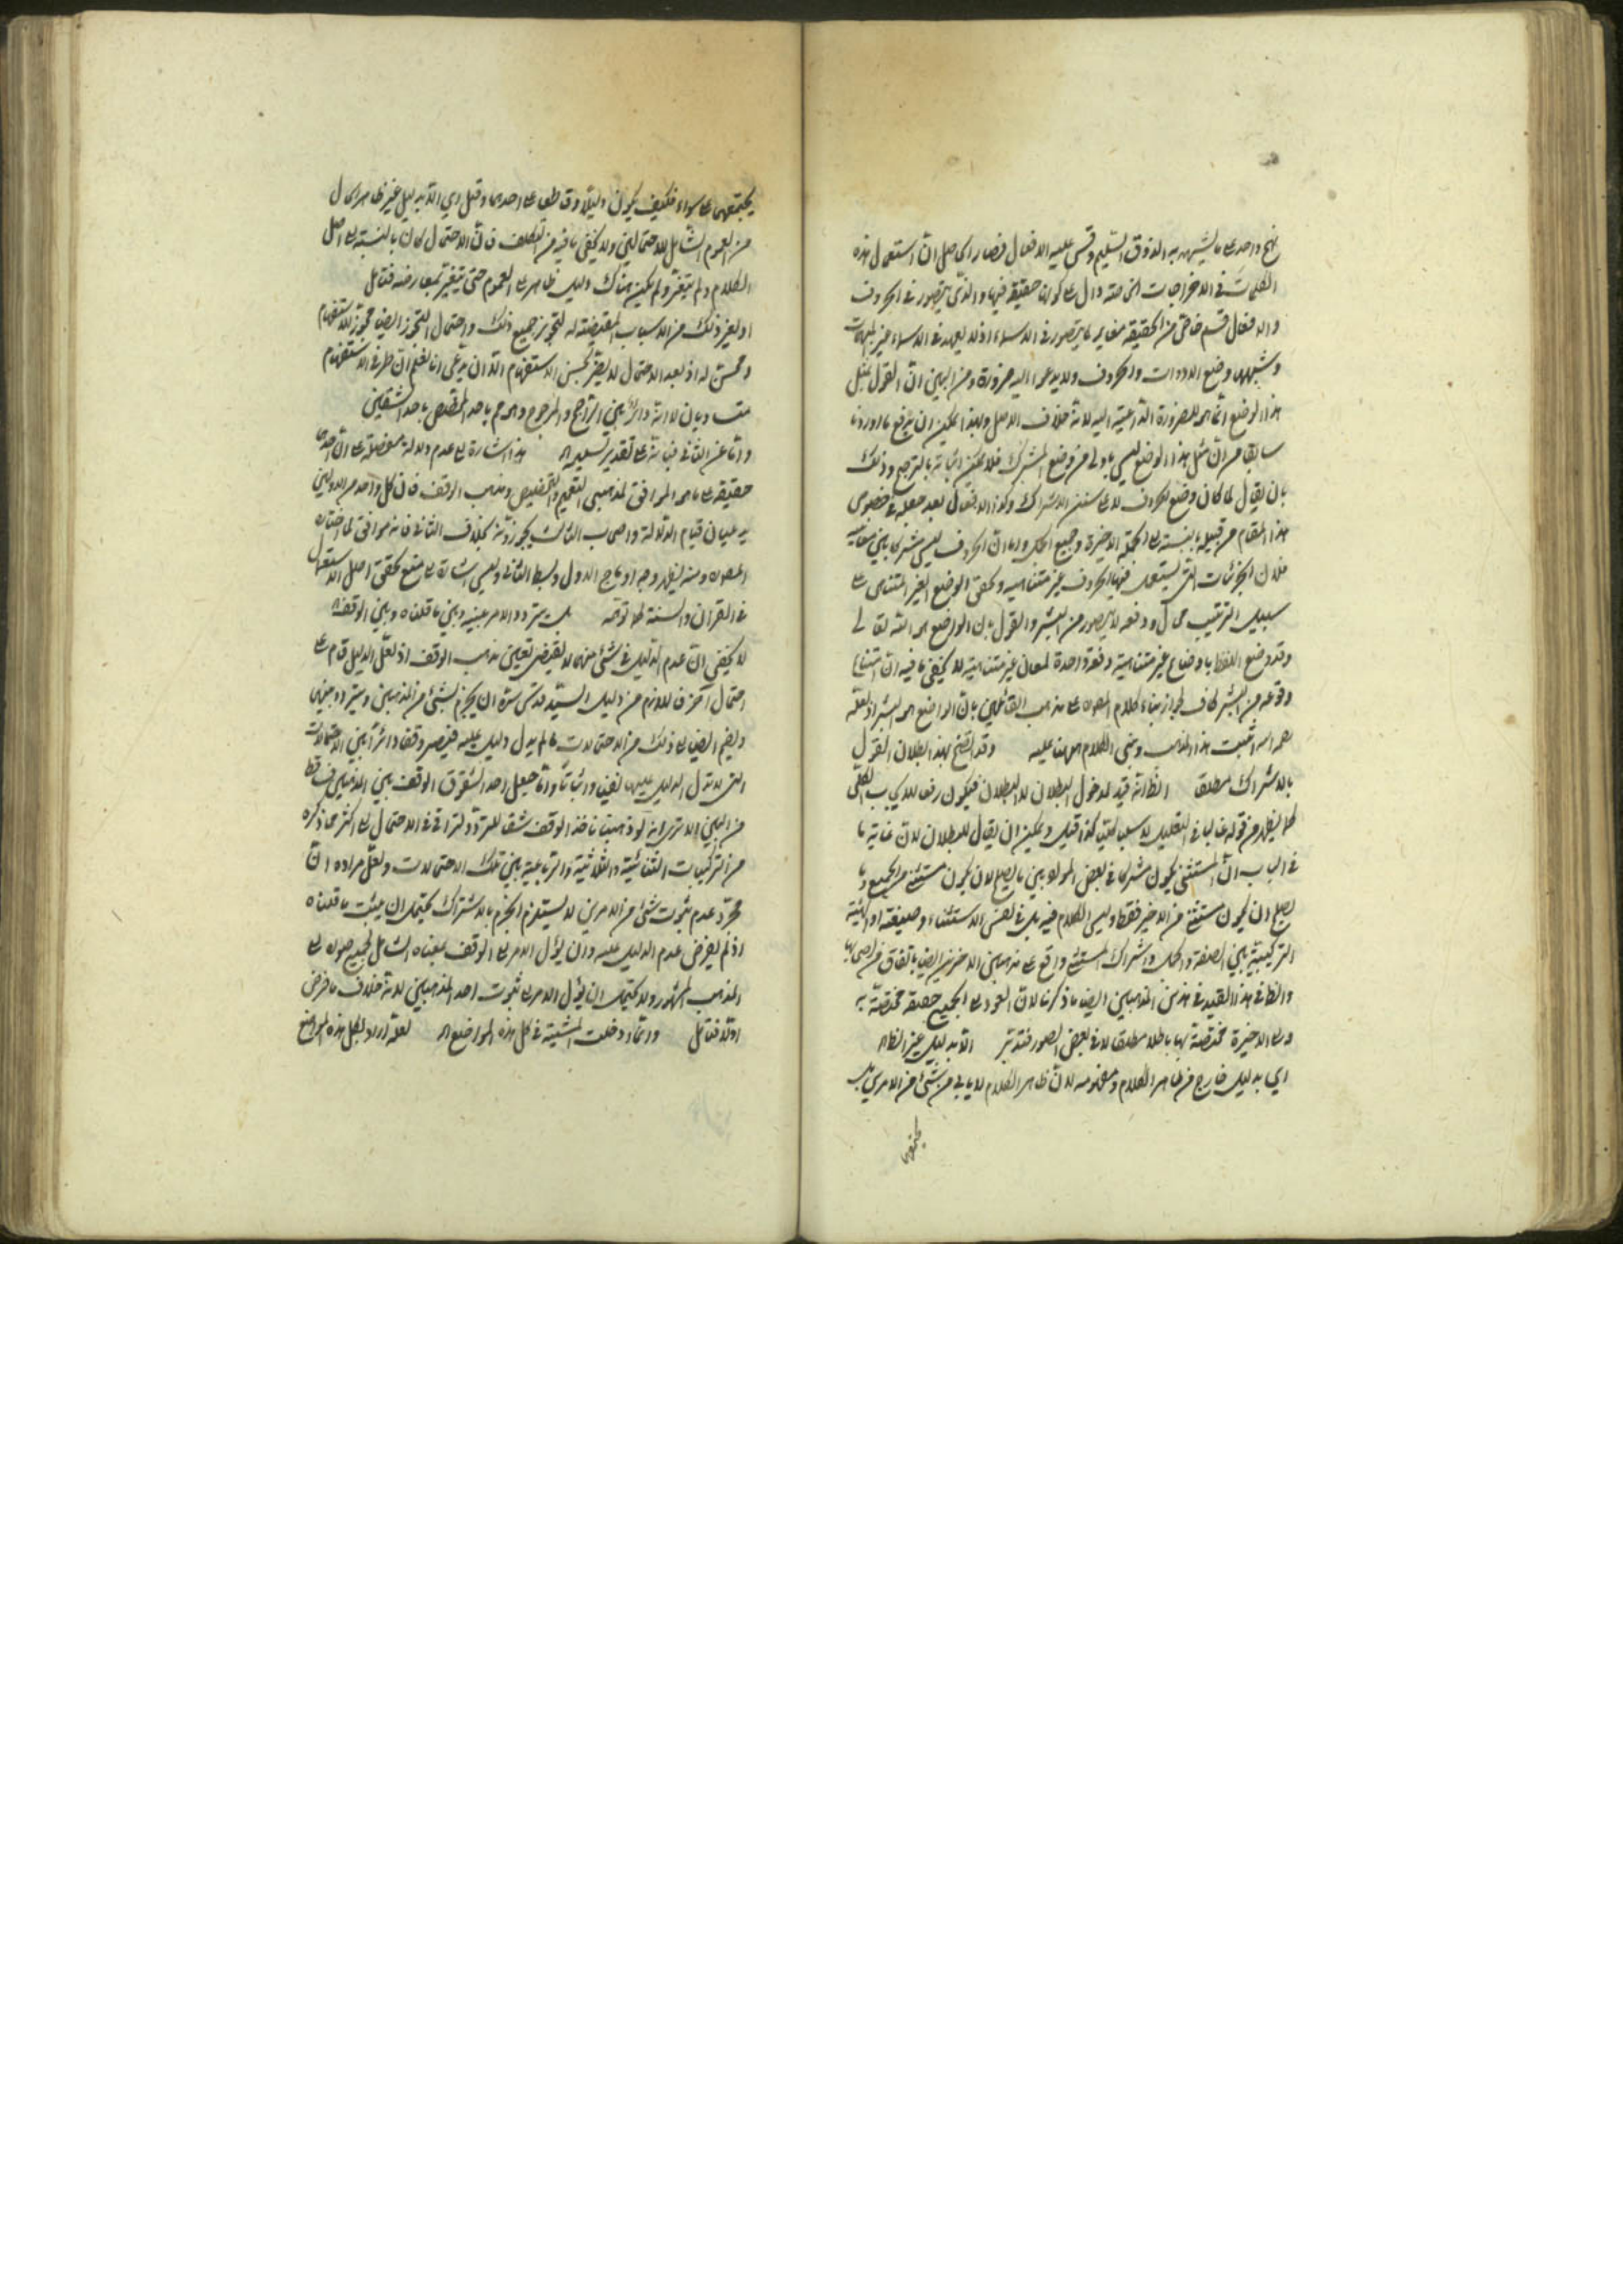 نهج واحد على ما يشهد به الذوق السليم وقس عليه الافعال فصار الحاصل ان استعمال هذه
الكلمات في الاخراجات الخاصة دال على كونها حقيقة فيها والذي يتصور في الحروف
والافعال قسم خاص من الحقيقة مغاير لما يتصور في الاسماء اذ لا يعهد في الاسماء غير المبهمات
وشبهها وضع الادوات والحروف ولا يدعو اليه ضرورة ومن البين ان القول بمثل
هذا الوضع انما هو للضرورة الداعية اليه لانه خلاف الاصل ولهذا يمكن ان يرفع ما اوردنا
سابقا من ان مثل هذا الوضع ليس باولى من وضع المشترك فلا يمكن اثباته بالترجيح وذلك
بان يقال لما كان وضع الحروف لا على سنن الاشتراك وكذا الافعال بعد جعله في خصوص
هذا المقام من قبيله بالنسبة الى الجملة الاخيرة وجميع الجمل واما ان الحروف ليس مشتركا بين معانيه
فلان الجزئيات التي يستعمل فيها الحروف غير متناهية وتحقق الوضع الغير المتناهي على
سبيل الترتيب محال ودفعه لا يتصور من البشر والقول بان الواضع هو الله تعالى
وقد وضع اللفظ باوضاع غير متناهية دفعة واحدة لمعان غير متناهية لا يخفى ما فيه ان امتناع
وقوعه من البشر كاف لجواز بناء كلام المصره على مذهب القائلين بان الواضع هو البشر اذ لعله
رحمه الله اثبت هذا المذهب وبنى الكلام ههنا عليه وقد اتضح بهذا بطلان القول
بالاشتراك مطلقا الظ انه قيد لمدخول البطلان لا البطلان فيكون رفعا للايجاب الكلي
كما يظهر من قوله غالبا في التعليل لا سلبا كليا كذا قيل ويمكن ان يقال للبطلان لان غاية ما
في الباب ان المستثنى يكون مشتركا في بعض المواد بين ما يصلح لان يكون مستثنى من الجميع وما
يصلح ان يكون مستثنى من الاخير فقط وليس الكلام فيه بل في نفس الاستثناء وصيغته او الهيئة
التركيبية بين الصفة والحال واشتراك المستثنى واقع على مذهبين الاخرين ايضا باتفاق من اصحابها
والظ في هذا القيد في هذين المذهبين ايضا ما ذكرنا لان العود الى الجميع حقيقة مختصة به
والى الاخيرة مختصة بها باطلا مطلقا لا في بعض الصور فتدبر الا بدليل غير الظاه
اي بدليل خارج من ظاهر الكلام ومفهومه لان ظاهر الكلام لا يابى من شئ من الامرين بل
يحتملهما على سواء فكيف يكون دليلا وقاطعا على احدهما وقيل اي الا بدليل غير ظاهر الحال
من العموم الشامل للاحتمالين ولا يخفى ما فيه من التكلف فان الاحتمال كان بالنسبة الى اصل
الكلام ولم يتغير ولم يكن هناك دليل ظاهر على العموم حتى يتغير بمعارضه فتامل
او لغير ذلك من الاسباب المقتضية له لتجويز جميع ذلك واحتمال التجوز ايضا مجوز للاستفهام
ومحسن له اذ بعد الاحتمال لا يضر لحسن الاستفهام الا ان يدعى انا نعلم ان طرفي الاستفهام
متساويان لا انه دائر بين الراجح والمرجوح
واما عن الثاني فبانه على تقدير تسليمه هذا اشارة الى عدم دلالة
حقيقة على ما هو الموافق لمذهبي التعميم والتخصيص ومذهب الوقف فان كل واحد من الاولين
يدعيان قيام الدلالة واصحاب الثالث يجوزونه بخلاف الثاني فانه موافق لما اختاره
المصره ومنه يظهر وجه ادماج الاول وبسط الثاني وليس اشارة الى منع تحقق اصل الاستعمال
في القرآن والسنة كما توهم بل يتردد الامر بينه وبين ما قلناه وبين الوقف
لا يخفى ان عدم الدليل في شئ منهما لا يقتضي تعيين مذهب الوقف اذ لعل الدليل قام على
احتمال آخر فاللازم من دليل السيد قدس سره ان يجزم بشئ من المذهبين ويتردد بينهما
وليضم ايضا الى ذلك من الاحتمالات ما لم يدل دليل عليه فيصير وقفا دائرا بين الاحتمالات
التي لا تدل الدليل عليها نفيا واثباتا واما جعل احد الشقوق الوقف بين المذهبين فساقط
من البين الا ترى انه لو ذهبنا ناخذ الوقف شقا للتردد لترقى في الاحتمال الى اكثر مما ذكره
من التركيبات الثنائية والثلاثية والرباعية بين تلك الاحتمالات ولعل مراده ان
مجرد عدم ثبوت شئ من الامرين لا يستلزم الجزم بالاشتراك يحتمل ان يثبت ما قلناه
اذ لم يفرض عدم الدليل عليه وان يؤل الامر الى الوقف بمعناه الشامل لجميع صوره الى
المذهب المشهور ولا يحتمل ان يؤل الامر الى ثبوت احد المذهبين لانه خلاف ما فرض
اولا فتامل وانما دخلت المشية في كل هذه المواضع اه لعله اراد بكل هذه المواضع